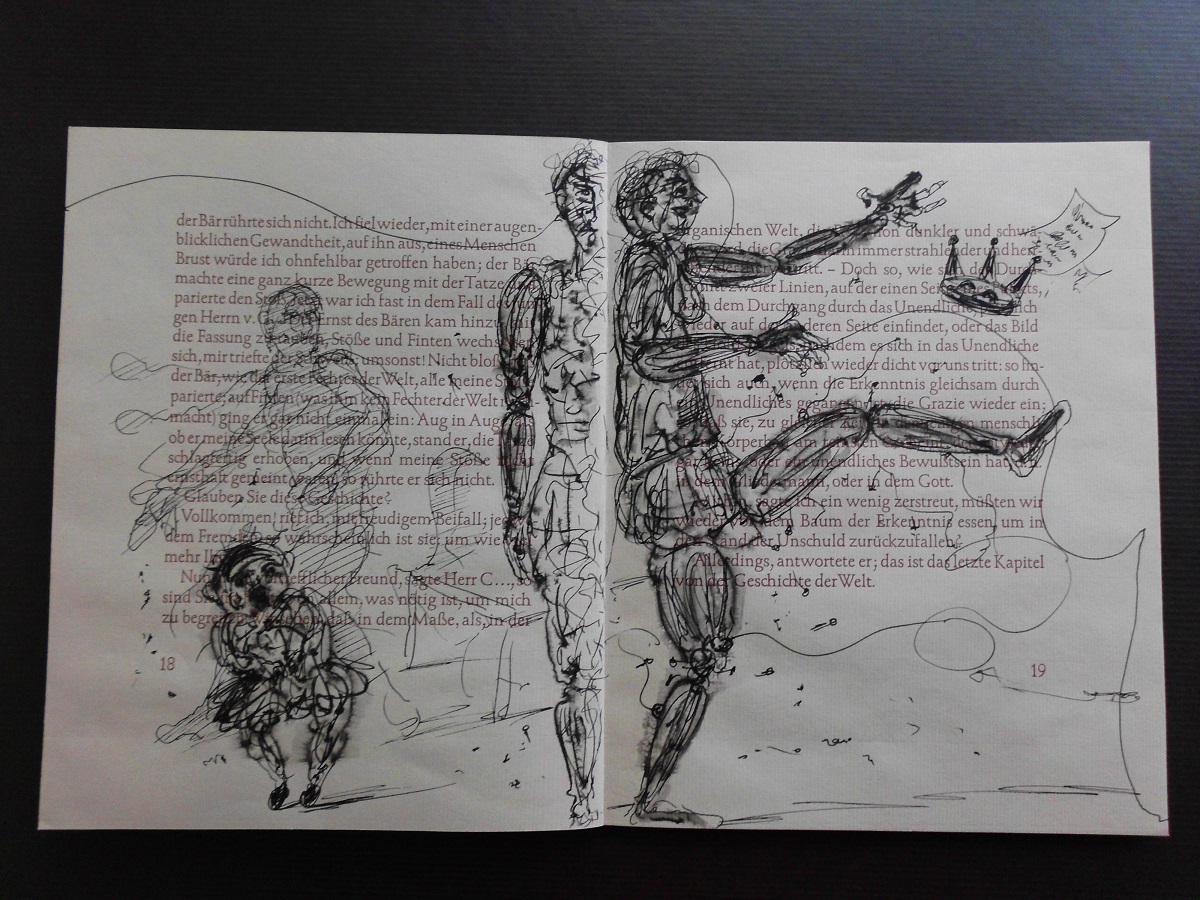 der Bär rührte sich nicht. Ich fiel wieder, mit einer augen-
blicklichen Gewandtheit, auf ihn aus, eines Menschen
Brust würde ich ohnfehlbar getroffen haben; der Bär
machte eine ganz kurze Bewegung mit der Tatze und
parierte den Stoß. Jetzt war ich fast in dem Fall des jun-
gen Herrn v. G... Der Ernst des Bären kam hinzu, mir
die Fassung zu rauben, Stöße und Finten wechselten
sich, mir triefte der Schweiß: umsonst! Nicht bloß, daß
der Bär, wie der erste Fechter der Welt, alle meine Stöße
parierte; auf Finten (was ihm kein Fechter der Welt
macht) ging er gar nicht einmal ein: Aug in Auge, als
ob er meine Seele darin lesen könnte, stand er, die Tatze
schlagfertig erhoben, und wenn meine Stöße nicht
ernsthaft gemeint waren, so rührte er sich nicht.
Glauben Sie diese Geschichte?
Vollkommen! rief ich, mit freudigem Beifall; jedwe-
dem Fremden, so wahrscheinlich ist sie: um wie viel
mehr Ihnen
Nun, vortrefflicher Freund, sagte Herr C..., so
sind Sie im allem, was nötig ist, um mich
zu begreifen. Wir sehen, daß in dem Maße, als, in der
18
organischen Welt, die dunkler und schwä-
wird, die Grazie immer strahlender und
hervortritt. – Doch so, wie sich der Durch-
zweier Linien, auf der einen Seite
nach dem Durchgang durch das Unendliche, plötzlich
wieder auf der anderen Seite einfindet, oder das Bild
nachdem es sich in das Unendliche
entfernt hat, plötzlich wieder dicht vor uns tritt: so fin-
det sich auch, wenn die Erkenntnis gleichsam durch
ein Unendliches gegangen ist, die Grazie wieder ein;
so daß sie, zu gleicher Zeit, in dem menschli-
Körperbau am
gar oder ein unendliches Bewußtsein hat,
in dem Gliedermann, oder in dem Gott.
Mithin, sagte ich ein wenig zerstreut, müßten wir
wieder von dem Baum der Erkenntnis essen, um in
den Stand der Unschuld zurückzufallen?
Allerdings, antwortete er; das ist das letzte Kapitel
von der Geschichte der Welt.
19